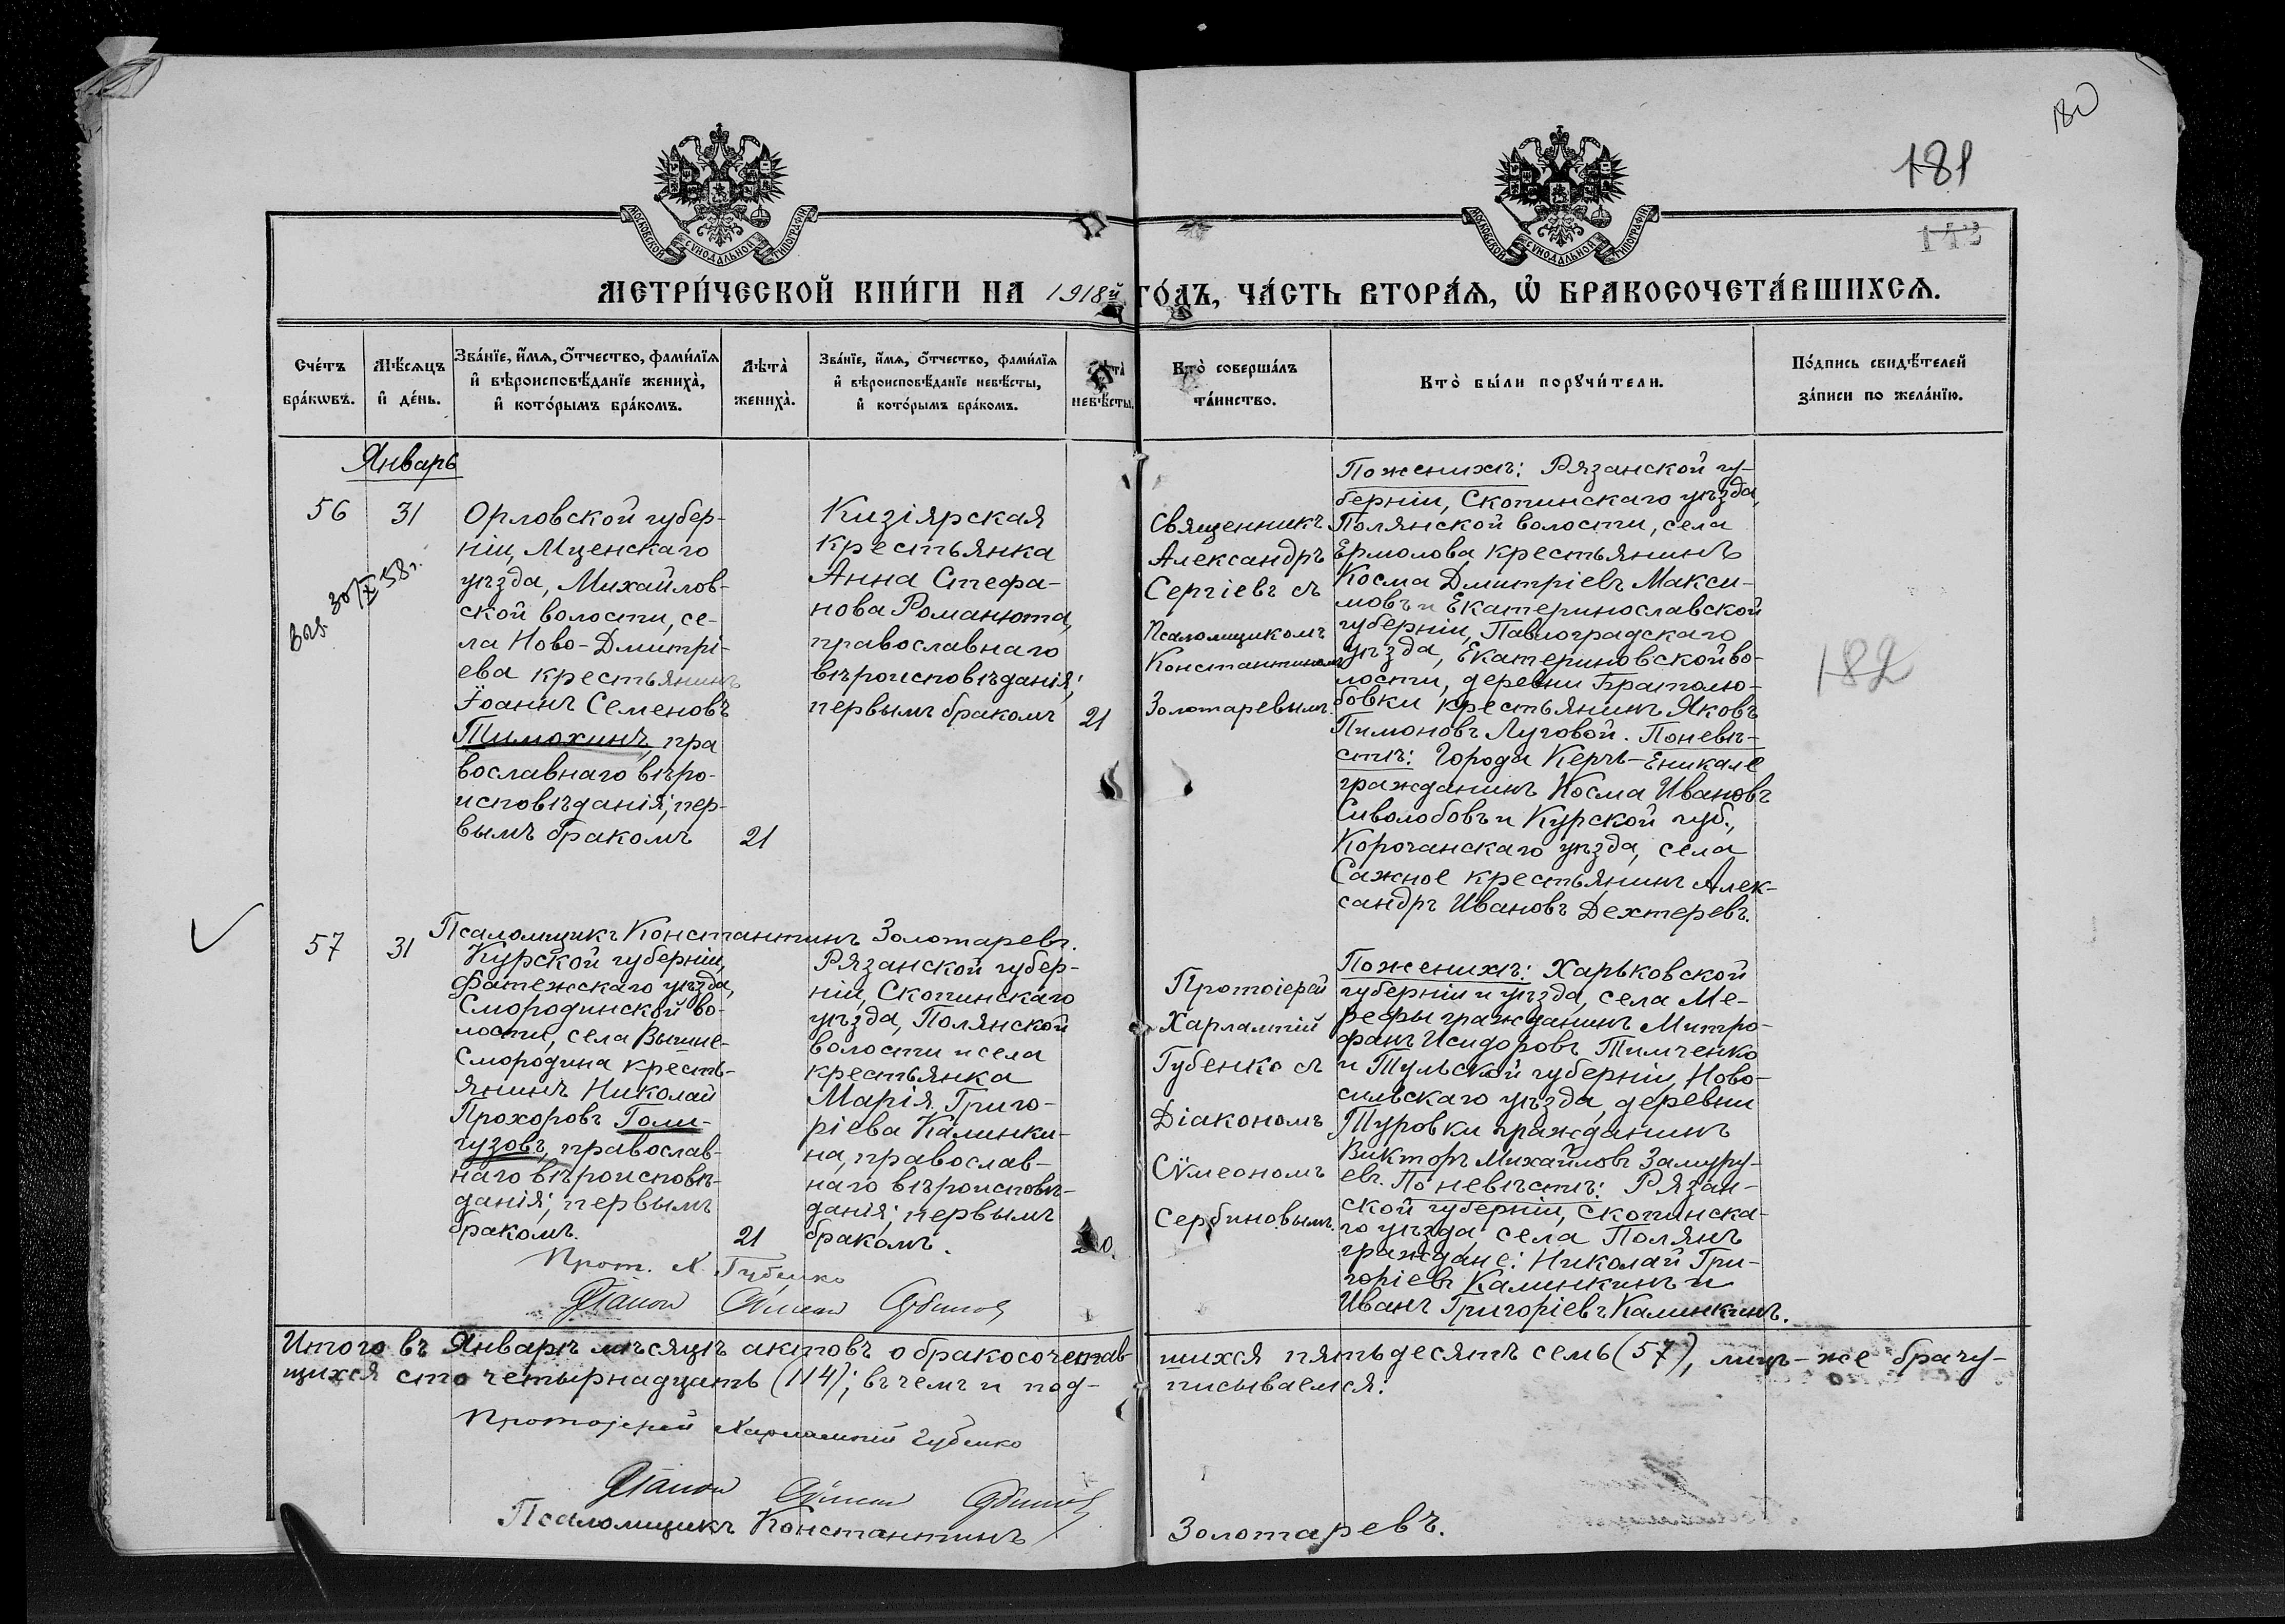 180
181
142
МОСКОВСКОЙ СѴНОДАЛЬНОЙ ТИПОГРАФІИ
МОСКОВСКОЙ СѴНОДАЛЬНОЙ ТИПОГРАФІИ
МЕТРИ́ЧЕСКОЙ КНИ́ГИ НА 1918й ГО́ДЪ, ЧА́СТЬ ВТОРА́Ѧ, Ѡ҆ БРАКОСОЧЕТА́ВШИХСѦ.
Сче́тъ
бра́кѡвъ.
Мѣ́сѧцъ
и҆ де́нь.
Зва́нїе, и҆́мѧ, ѻ҆́тчество, фами́лїѧ
и҆ вѣроисповѣ́данїе жениха̀,
и҆ кото́рымъ бра́комъ.
Лѣта̀
жениха̀.
Зва́нїе, и҆́мѧ, ѻ҆́тчество, фами́лїѧ
и҆ вѣроисповѣ́данїе невѣ́сты,
и҆ кото́рымъ бра́комъ.
Лѣта̀
невѣ́сты.
Кто̀ соверша́лъ
та́инство.
Кто̀ бы́ли порꙋчи́тели.
По́дпись свидѣ́телей
за́писи по жела́нїю.
Январь
56
31
30/X 58г.
Орловской губер-
ніи, Мценскаго
уѣзда, Михайлов-
ской волости, се-
ла Ново-Дмитрі-
ева крестьянинъ
Іоаннъ Семеновъ
Тимохинъ, пра
вославнаго вѣро-
исповѣданія; пер-
вымъ бракомъ
21
Кизіярская
крестьянка
Анна Стефа-
нова Романюта,
православнаго
вѣроисповѣданія;
первымъ бракомъ
21
Священникъ
Александръ
Сергіевъ съ
Псаломщикомъ
Константиномъ
Золотаревымъ.
По женихѣ: Рязанской гу-
берніи, Скопинскаго уѣзда,
Полянской волости, села
Ермолова крестьянинъ
Косма Дмитріевъ Макси-
мовъ и Екатеринославской
губерніи, Павлоградскаго
уѣзда, Екатериновской во-
лости, деревни Братолю-
бовки крестьянинъ Яковъ
Пимоновъ Луговой. По невѣ-
стѣ: Города Керчь-Еникале
гражданинъ Косма Ивановъ
Сиволобовъ и Курской губ.,
Корочанскаго уѣзда, села
Сажное крестьянинъ Алек-
сандръ Ивановъ Дехтеревъ.
182
Псаломщикъ Константинъ Золотаревъ.
57
31
Курской губерніи,
Фатежскаго уѣзда,
Смородинской во-
лости, села Вышне-
Смородина кресть-
янинъ Николай
Прохоровъ Голи-
гузовъ, православ-
наго вѣроисповѣ-
данія; первымъ
бракомъ.
21
Рязанской губер-
ніи, Скопинскаго
уѣзда, Полянской
волости и села
крестьянка
Марія Григо-
ріева Калинки-
на, православ-
наго вѣроисповѣ-
данія; первымъ
бракомъ.
20.
Протоіерей
Харлампій
Губенко съ
Діакономъ
Сѵмеономъ
Сербиновымъ.
По женихѣ: Харьковской
губерніи и уѣзда, села Ме-
рефы гражданинъ Митро-
фанъ Исидоровъ Тимченко
и Тульской губерніи, Ново-
сильскаго уѣзда, деревни
Туровки гражданинъ
Викторъ Михайловъ Замуру-
евъ. По невѣстѣ: Рязан-
ской губерніи, Скопинска-
го уѣзда, села Полянъ
граждане: Николай Гри-
горіевъ Калинкинъ и
Иванъ Григоріевъ Калинкинъ.
Прот. Х. Губенко
Діаконъ Сѵмеонъ Сербиновъ
Итого въ Январѣ мѣсяцѣ актовъ о бракосочетав-
шихся пятьдесятъ семь (57), лицъ-же брачу-
щихся сто четырнадцать (114); въ чемъ и под-
писываемся:
Протоіерей Харлампій Губенко
Діаконъ Сѵмеонъ Сербиновъ
Псаломщикъ Константинъ Золотаревъ.